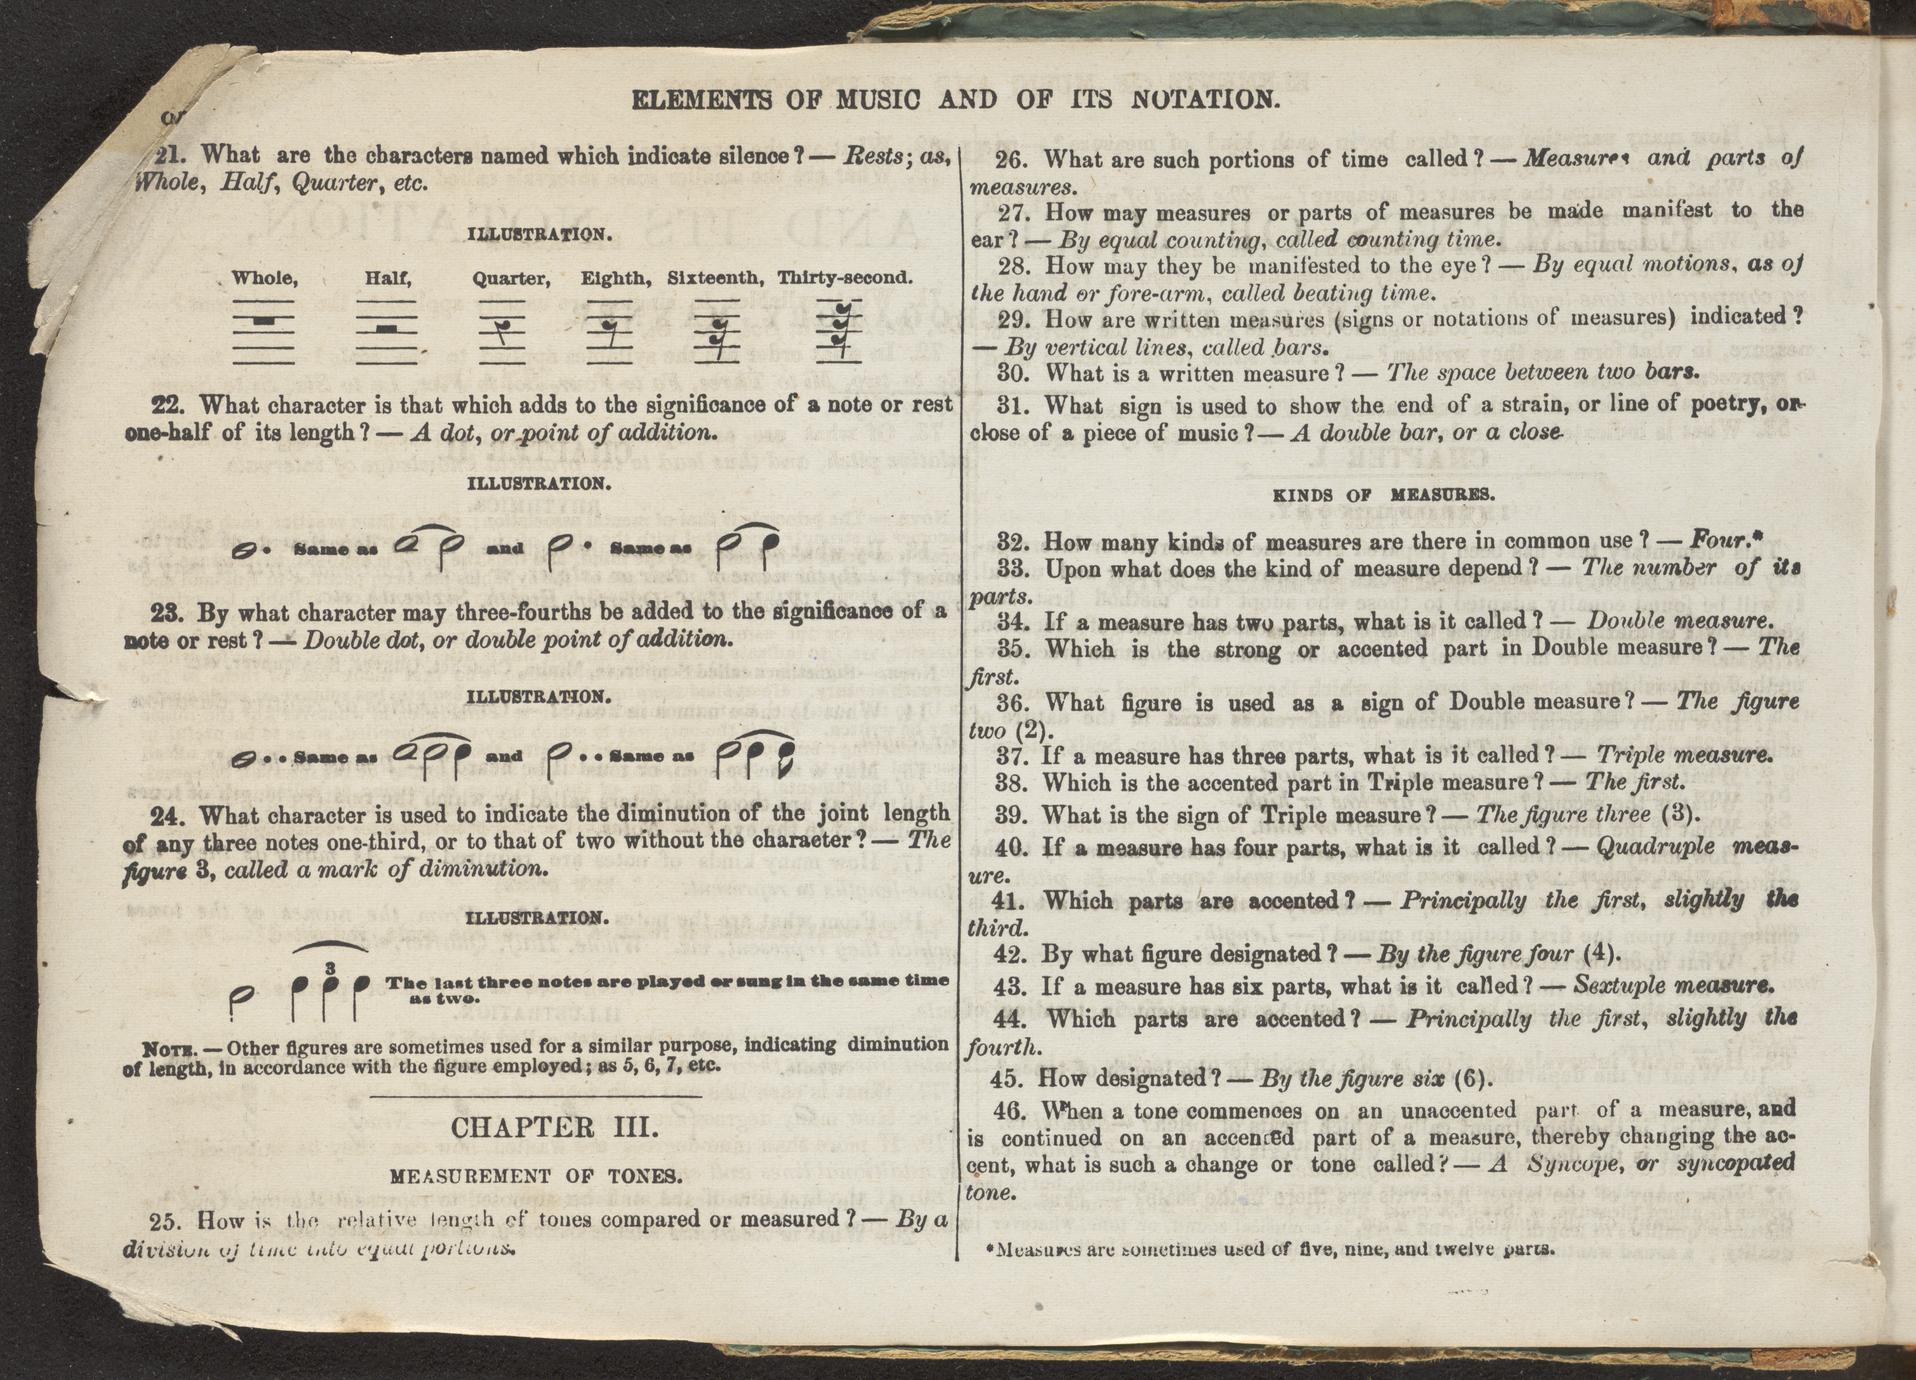 ELEMENTS OF MUSIC AND OF ITS NOTATION.
21. What are the characters named which indicate silence? — Rests; as,
Whole, Half, Quarter, etc.
ILLUSTRATION.
Whole, Half, Quarter, Eighth, Sixteenth, Thirty-second.
22. What character is that which adds to the significance of a note or rest
one-half of its length? — A dot, or point of addition.
ILLUSTRATION.
Same as and Same as
23. By what character may three-fourths be added to the significance of a
note or rest? — Double dot, or double point of addition.
ILLUSTRATION.
Same as and Same as
24. What character is used to indicate the diminution of the joint length
of any three notes one-third, or to that of two without the character? — The
figure 3, called a mark of diminution.
ILLUSTRATION.
3
The last three notes are played or sung in the same time
as two.
NOTE. — Other figures are sometimes used for a similar purpose, indicating diminution
of length, in accordance with the figure employed; as 5, 6, 7, etc.
CHAPTER III.
MEASUREMENT OF TONES.
25. How is the relative length of tones compared or measured? — By a
division of time into equal portions.
26. What are such portions of time called? — Measures and parts of
measures.
27. How may measures or parts of measures be made manifest to the
ear? — By equal counting, called counting time.
28. How may they be manifested to the eye? — By equal motions, as of
the hand or fore-arm, called beating time.
29. How are written measures (signs or notations of measures) indicated?
— By vertical lines, called bars.
30. What is a written measure? — The space between two bars.
31. What sign is used to show the end of a strain, or line of poetry, or
close of a piece of music? — A double bar, or a close.
KINDS OF MEASURES.
32. How many kinds of measures are there in common use? — Four.*
33. Upon what does the kind of measure depend? — The number of its
parts.
34. If a measure has two parts, what is it called? — Double measure.
35. Which is the strong or accented part in Double measure? — The
first.
36. What figure is used as a sign of Double measure? — The figure
two (2).
37. If a measure has three parts, what is it called? — Triple measure.
38. Which is the accented part in Triple measure? — The first.
39. What is the sign of Triple measure? — The figure three (3).
40. If a measure has four parts, what is it called? — Quadruple meas-
ure.
41. Which parts are accented? — Principally the first, slightly the
third.
42. By what figure designated? — By the figure four (4).
43. If a measure has six parts, what is it called? — Sextuple measure.
44. Which parts are accented? — Principally the first, slightly the
fourth.
45. How designated? — By the figure six (6).
46. When a tone commences on an unaccented part of a measure, and
is continued on an accented part of a measure, thereby changing the ac-
cent, what is such a change or tone called? — A Syncope, or syncopated
tone.
*Measures are sometimes used of five, nine, and twelve parts.